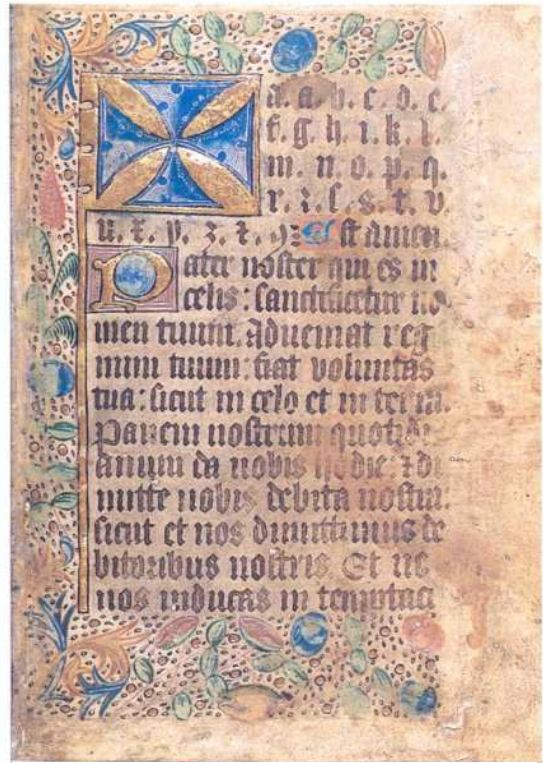 a. a. b. c. d. e.
f. g. h. i. k. l.
m. n. o. p. q.
r. ꝛ. ſ. s. t. v
u. x. y. z. ⁊. ꝯ: Est amen.
Pater noster qui es in
celis: sanctificetur no
men tuum. Adueniat reg
num tuum: fiat voluntas
tua: sicut in celo et in terra.
Panem nostrum quotidi
anum da nobis hodie: ⁊ di
mitte nobis debita nostra.
sicut et nos dimittimus de
bitoribus nostris. Et ne
nos inducas in temptaci